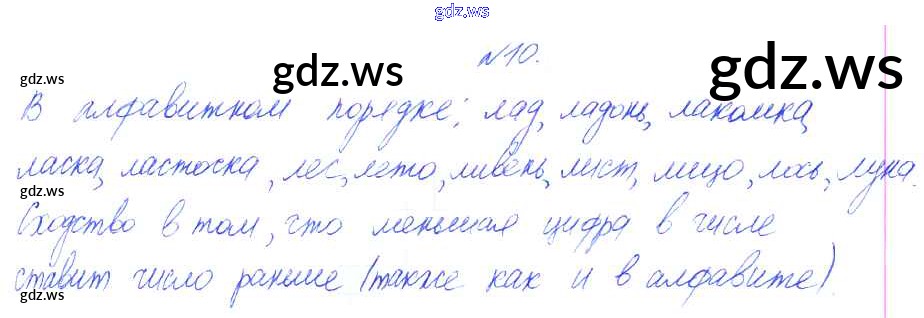 gdz.ws
№10.
gdz.ws gdz.ws gdz.ws
В алфавитном порядке: лад, ладонь, лакомка,
ласка, ласточка, лес, лето, ливень, лист, лицо, лось, луна.
gdz.ws
Сходство в том, что меньшая цифра в числе
ставит число раньше (также как и в алфавите).
gdz.ws gdz.ws gdz.ws